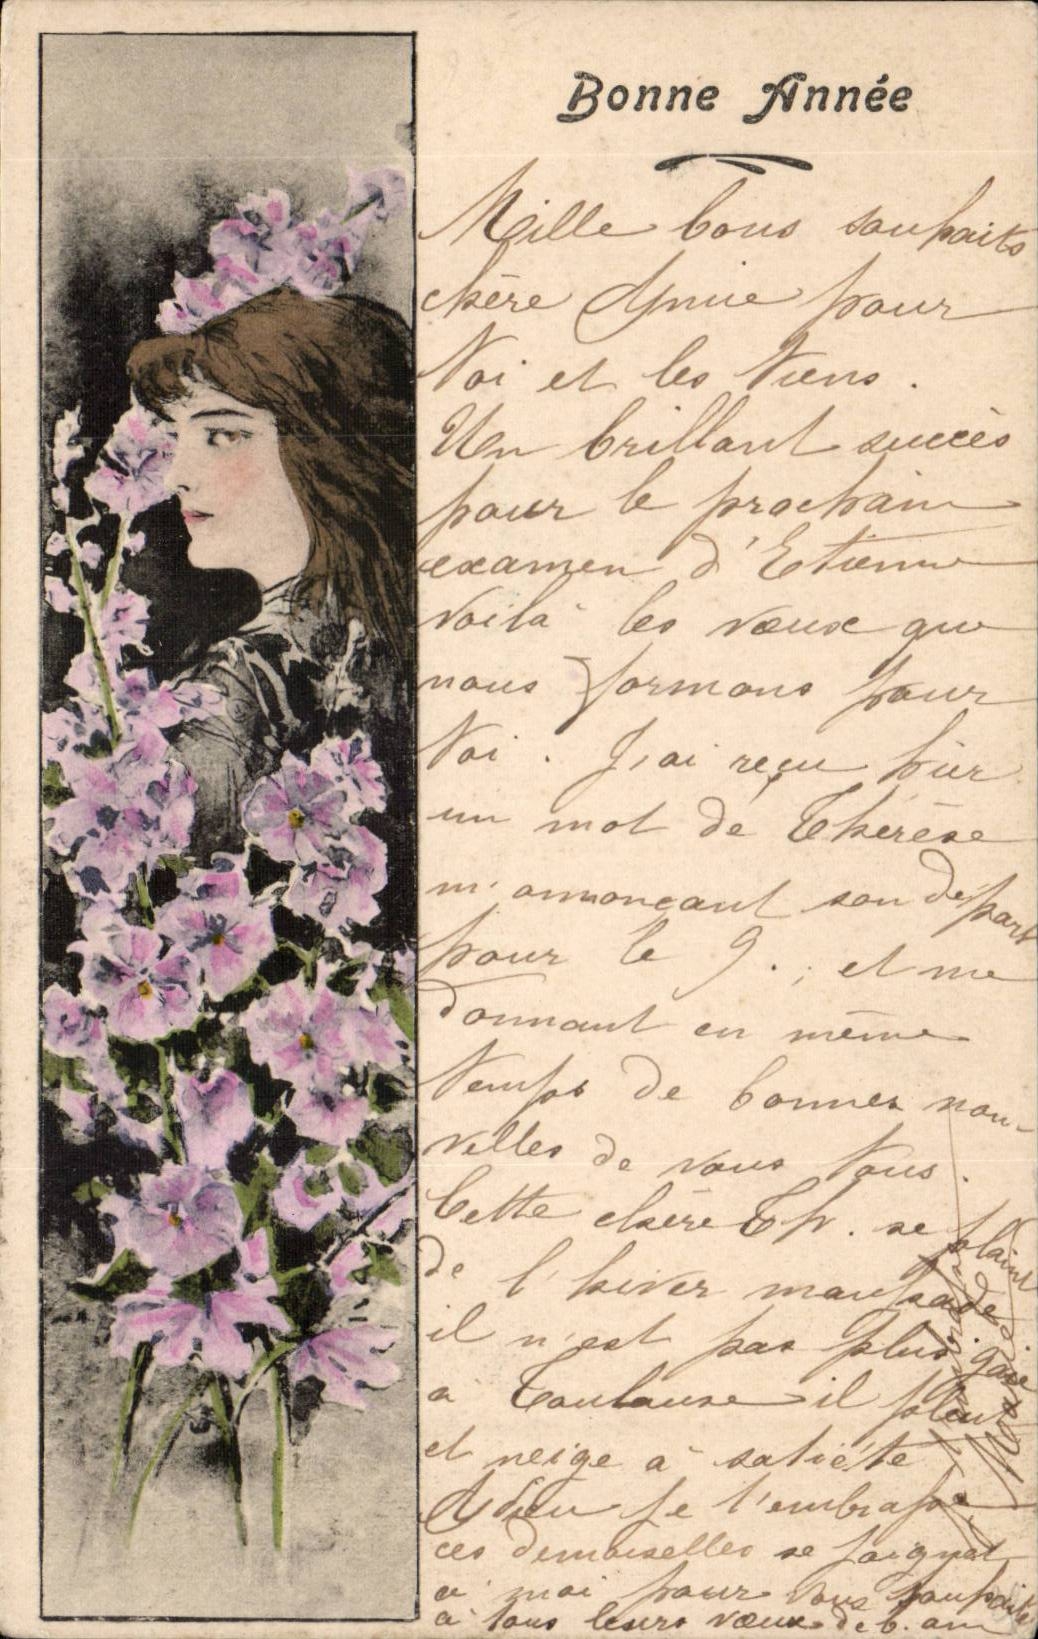 Bonne Année
Mille bons souhaits
chère Amie pour
toi et les tiens.
Un brillant succès
pour le prochain
examen d'Etienne
voilà les vœux que
nous formons pour
toi. J'ai reçu hier
un mot de Thérèse
m'annonçant son départ
pour le 9. ; et me
donnant en même
temps de bonnes nou-
velles de vous tous.
Cette chère Th. se plaint
de l'hiver maussade
il n'est pas plus gai
a Toulouse il pleut
et neige à satiété
Adieu je t'embrasse
ces demoiselles se joignent
a moi pour vous souhaiter
a tous leurs vœux de b. an